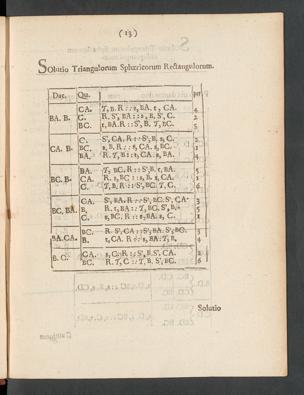 (13)
Solutio Triangulorum Sphæricorum Rectangulorum.
Dat. Quæ. per
CA. T, B. R :: s, BA. t, CA. 4
BA. B. C. R. S', BA :: s, B. S', C. 2
BC. t, BA. R :: S', B. T, BC.
C. S', CA. R :: S', B. s, C.
CA. B. BC. s, B. R :: s, CA. s, BC.
BA. R. T, B :: s, CA. s, BA. 4
BA. T, BC. R :: S', B. t, BA. 5
BC. B. CA. R. s, BC :: s, B. s, CA.
C. T, B. R :: S', BC. T, C. 6
CA. S', BA. R :: S', BC. S', CA.
BC. BA. B. R. t, BA :: T, BC. S', B. 5
C. s, BC. R :: s, BA. s, C. 1
BC. R. S', CA :: S', BA. S', BC. 3
BA. CA. B. t, CA. R :: s, BA. T, B. 4
B. C. CA. s, C. R :: S', B. S', CA. 2
BC. R. T, C :: T, B. S', BC. 6
Solutio